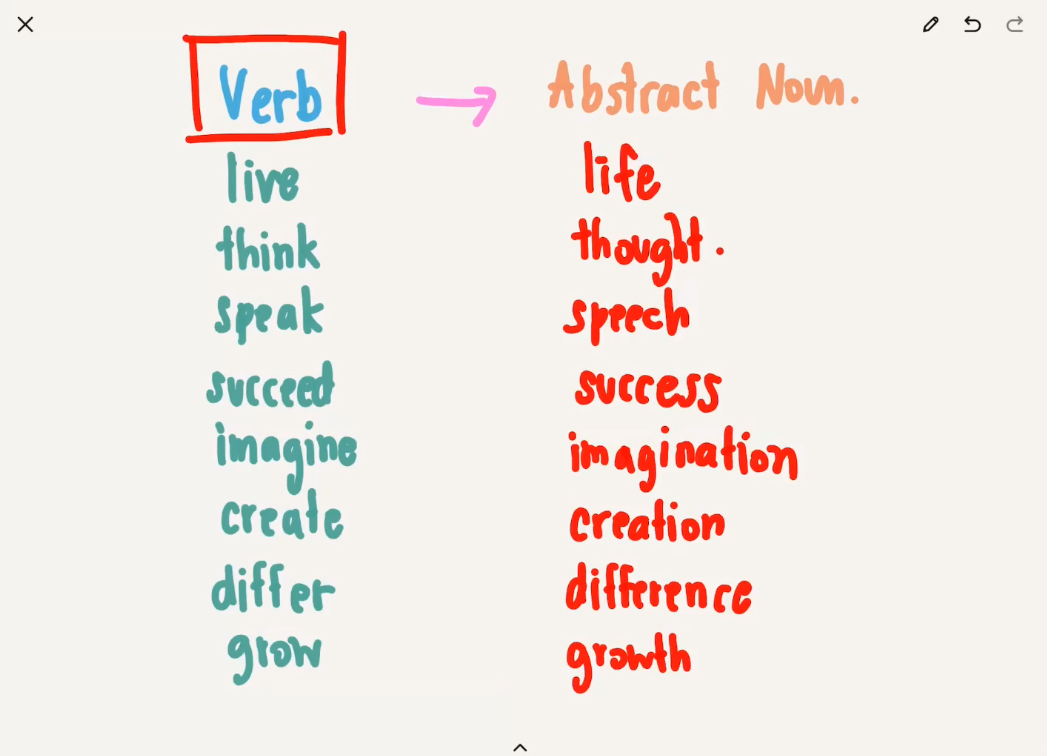 Verb → Abstract Noun.
live life
think thought.
speak speech
succeed success
imagine imagination
create creation
differ difference
grow growth